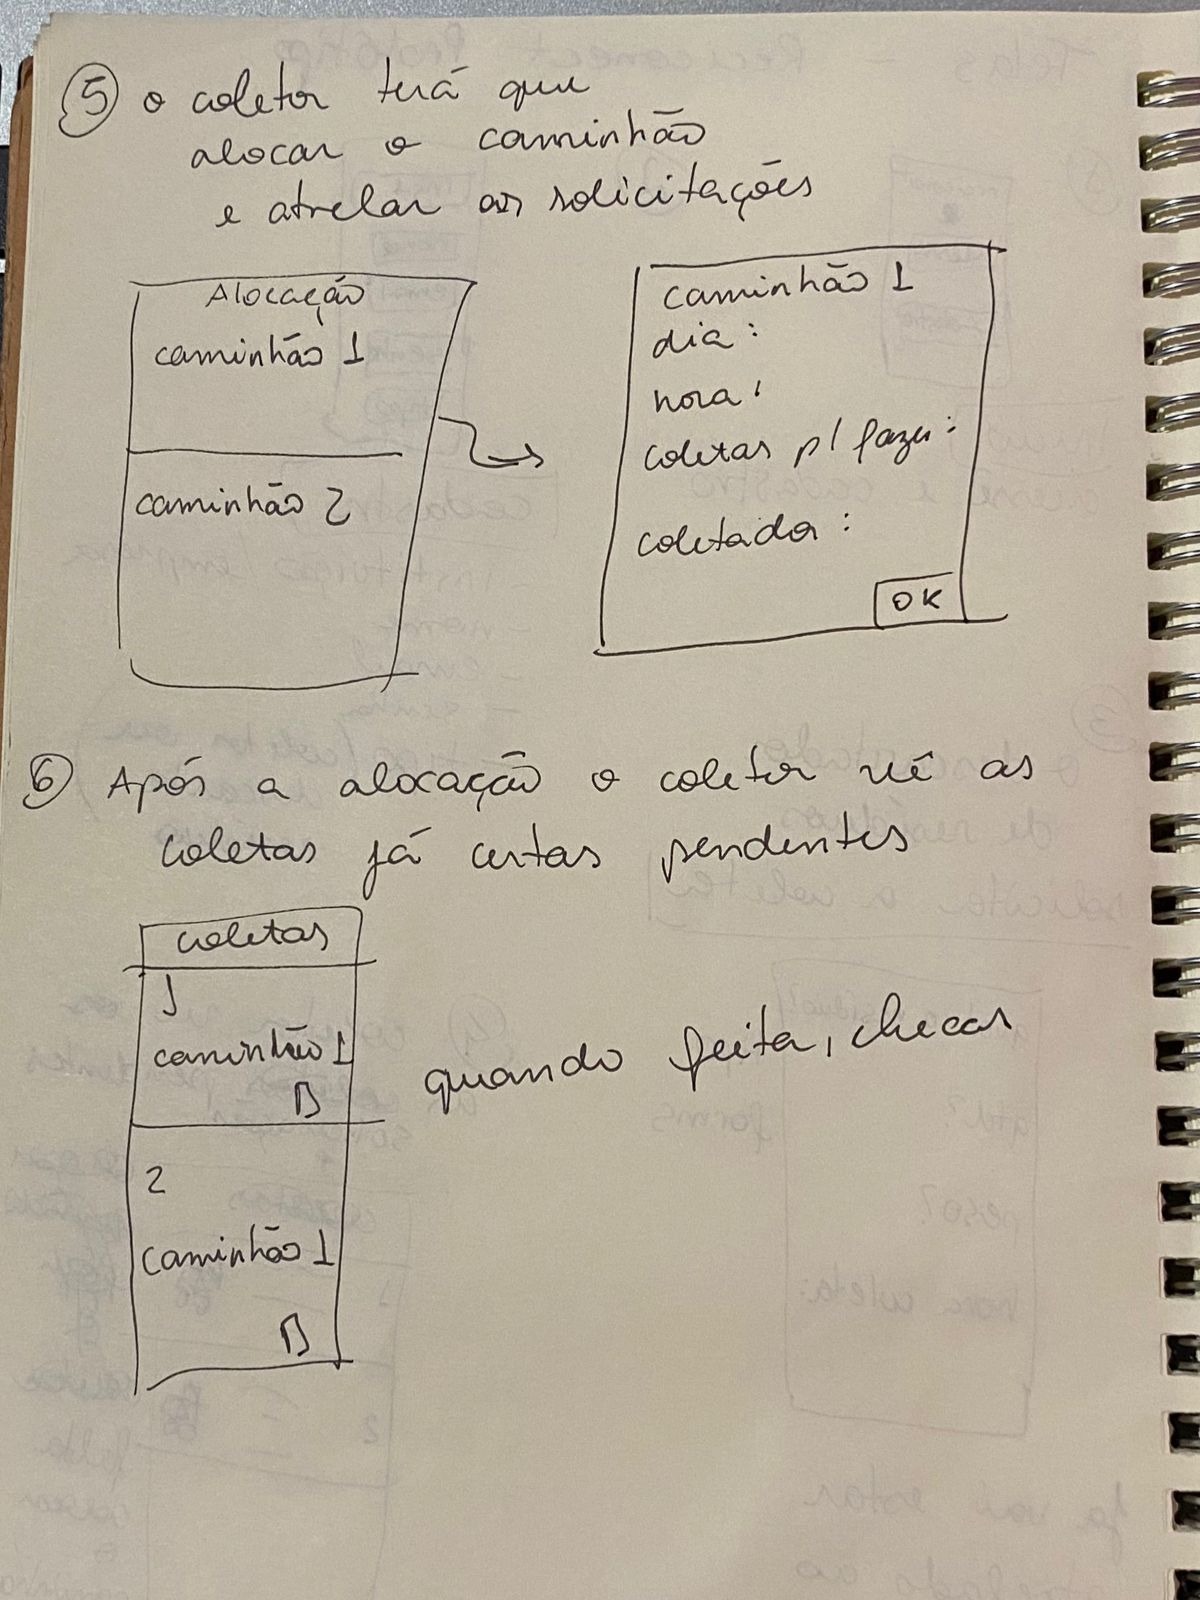 5 o coletor terá que
alocar o caminhão
e atrelar as solicitações
Alocação
caminhão 1
caminhão 2
caminhão 1
dia:
hora:
coletas p/ fazer:
coletador:
OK
6 Após a alocação o coletor vê as
coletas já certas pendentes
coletas
1
caminhão 1
2
caminhão 1
quando feita, checar